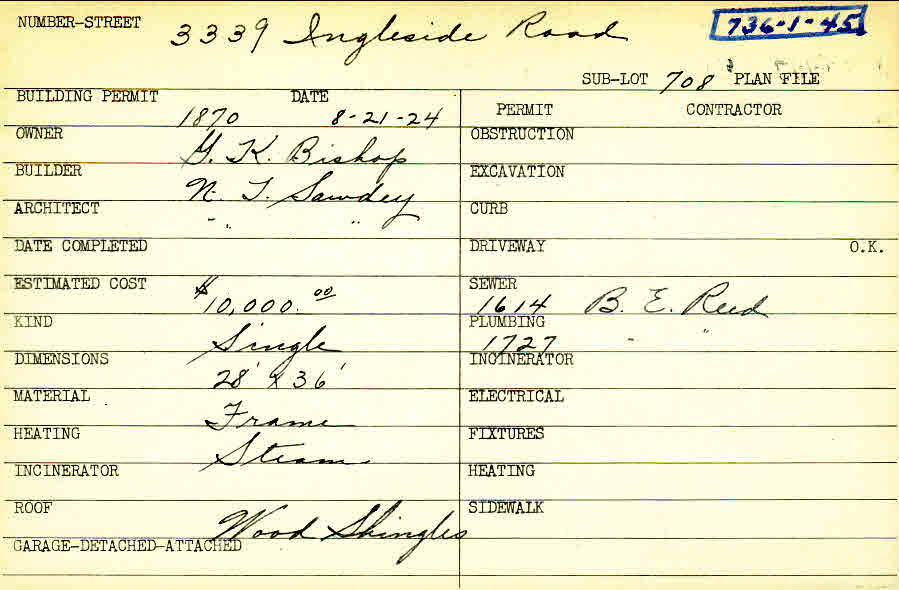 NUMBER-STREET 3339 Ingleside Road 736-1-45
SUB-LOT 708 PLAN FILE
BUILDING PERMIT DATE
1870 8-21-24
PERMIT CONTRACTOR
OWNER G. K. Bishop
BUILDER N. T. Sawdey
ARCHITECT " "
DATE COMPLETED
ESTIMATED COST $10,000.00
KIND Single
DIMENSIONS 28' x 36'
MATERIAL Frame
HEATING Steam
INCINERATOR
ROOF Wood Shingles
GARAGE-DETACHED-ATTACHED
OBSTRUCTION
EXCAVATION
CURB
DRIVEWAY O.K.
SEWER
1614 B. E. Reed
PLUMBING
1727 " "
INCINERATOR
ELECTRICAL
FIXTURES
HEATING
SIDEWALK